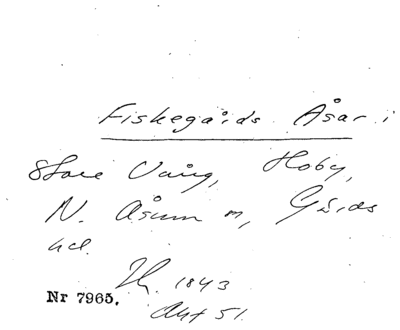 Fiskegårds Åsar i
Store Vång, Hoby,
N. Åsum m, Gärds
hd.
1843
Nr 7965.
Akt 51.